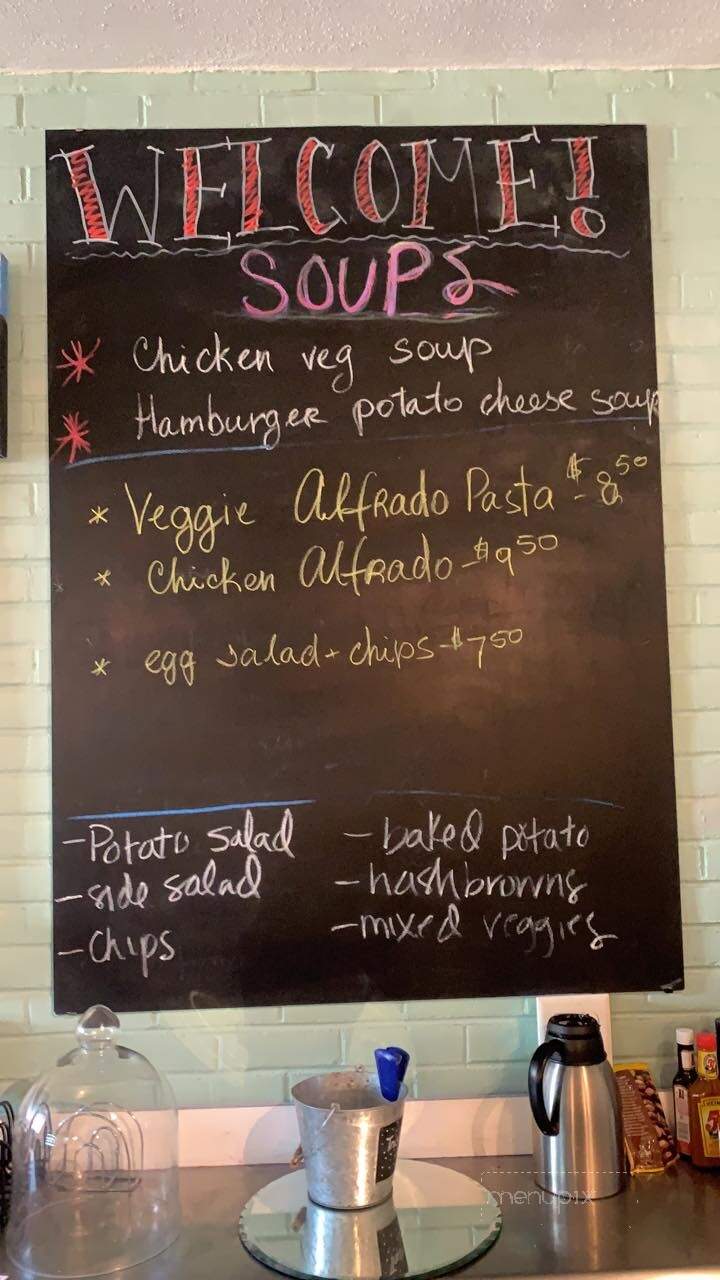 WELCOME!
SOUPS
* Chicken veg soup
* Hamburger potato cheese soup
* Veggie Alfrado Pasta - $8.50
* Chicken Alfrado - $9.50
* egg salad + chips - $7.50
- Potato salad
- side salad
- Chips
- baked potato
- hashbrowns
- mixed veggies
menupix